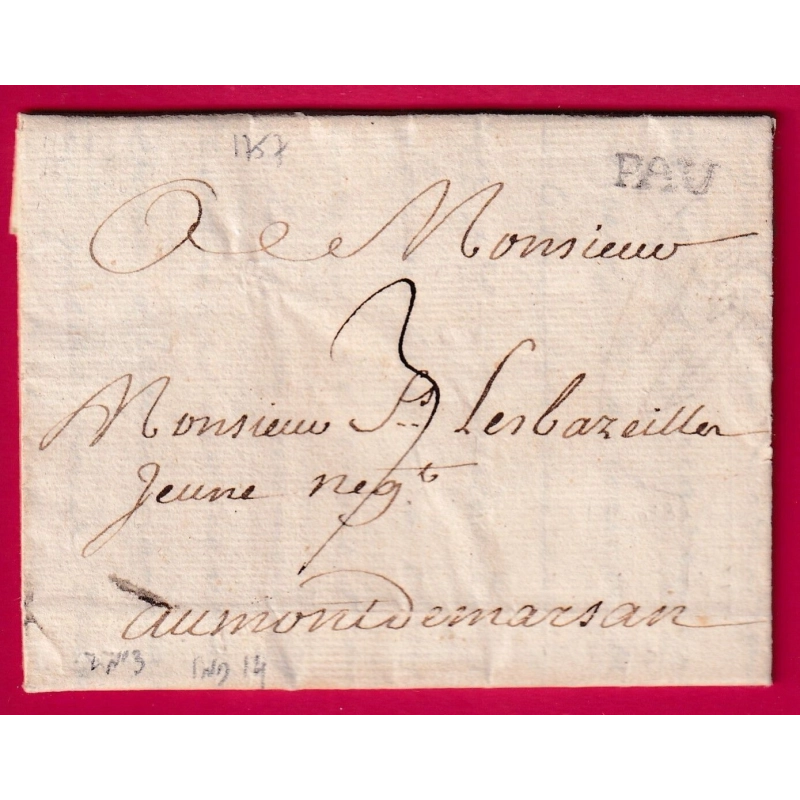 1757
PAU
A Monsieur
3
Monsieur Js Lesbazeilles
jeune negt
au mont de marsan
N°3 IND 14